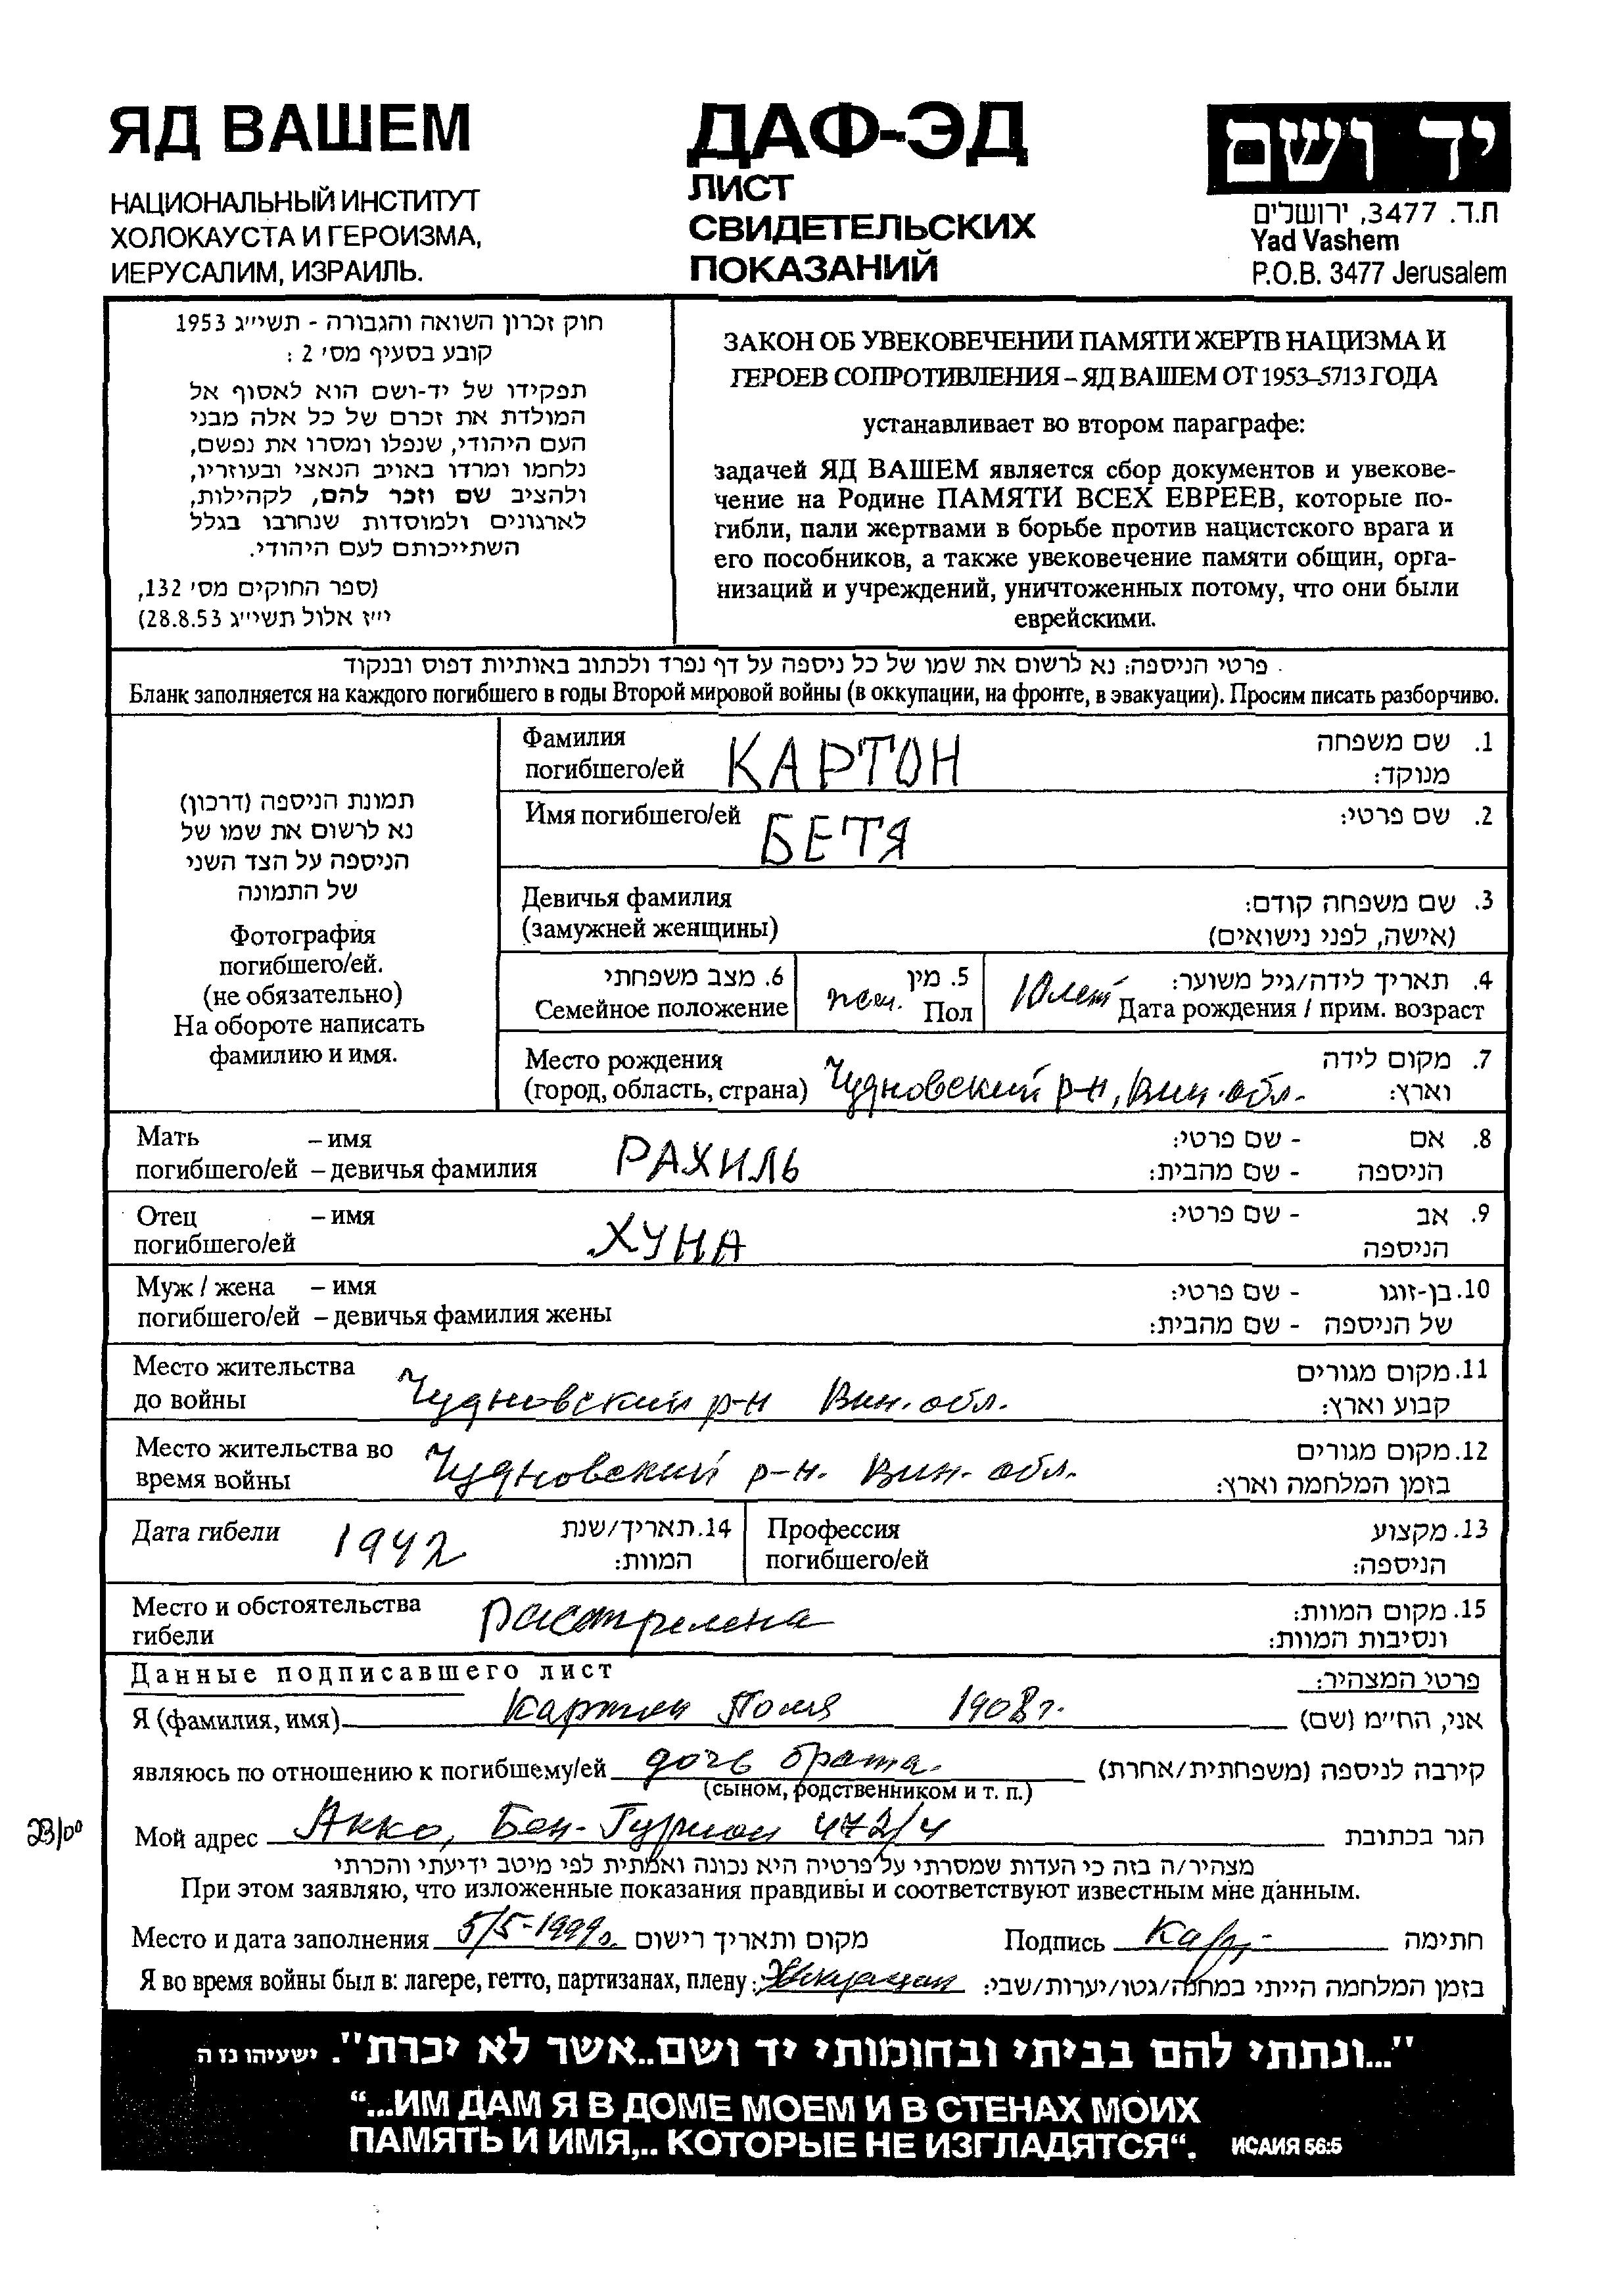 ЯД ВАШЕМ
НАЦИОНАЛЬНЫЙ ИНСТИТУТ
ХОЛОКАУСТА И ГЕРОИЗМА,
ИЕРУСАЛИМ, ИЗРАИЛЬ.
ДАФ-ЭД
ЛИСТ
СВИДЕТЕЛЬСКИХ
ПОКАЗАНИЙ
יד ושם
ת.ד. 3477, ירושלים
Yad Vashem
P.O.B. 3477 Jerusalem
חוק זכרון השואה והגבורה - תשי״ג 1953
קובע בסעיף מס׳ 2 :
תפקידו של יד-ושם הוא לאסוף אל
המולדת את זכרם של כל אלה מבני
העם היהודי, שנפלו ומסרו את נפשם,
נלחמו ומרדו באויב הנאצי ובעוזריו,
ולהציב שם וזכר להם, לקהילות,
לארגונים ולמוסדות שנחרבו בגלל
השתייכותם לעם היהודי.
(ספר החוקים מס׳ 132,
י״ז אלול תשי״ג 28.8.53)
ЗАКОН ОБ УВЕКОВЕЧЕНИИ ПАМЯТИ ЖЕРТВ НАЦИЗМА И
ГЕРОЕВ СОПРОТИВЛЕНИЯ – ЯД ВАШЕМ ОТ 1953–5713 ГОДА
устанавливает во втором параграфе:
задачей ЯД ВАШЕМ является сбор документов и увекове-
чение на Родине ПАМЯТИ ВСЕХ ЕВРЕЕВ, которые по-
гибли, пали жертвами в борьбе против нацистского врага и
его пособников, а также увековечение памяти общин, орга-
низаций и учреждений, уничтоженных потому, что они были
еврейскими.
פרטי הניספה: נא לרשום את שמו של כל ניספה על דף נפרד ולכתוב באותיות דפוס ובנקוד
Бланк заполняется на каждого погибшего в годы Второй мировой войны (в оккупации, на фронте, в эвакуации). Просим писать разборчиво.
תמונת הניספה (דרכון)
נא לרשום את שמו של
הניספה על הצד השני
של התמונה
Фотография
погибшего/ей.
(не обязательно)
На обороте написать
фамилию и имя.
Фамилия КАРТОН 1. שם משפחה
погибшего/ей מנוקד:
Имя погибшего/ей БЕТЯ 2. שם פרטי:
Девичья фамилия 3. שם משפחה קודם:
(замужней женщины) (אישה, לפני נישואים)
6. מצב משפחתי 5. מין 4. תאריך לידה/גיל משוער:
Семейное положение жен. Пол 10 лет Дата рождения / прим. возраст
Место рождения 7. מקום לידה
(город, область, страна) Чудновский р-н, Вин. обл. וארץ:
Мать – имя РАХИЛЬ 8. אם - שם פרטי:
погибшего/ей – девичья фамилия הניספה - שם מהבית:
Отец – имя ХУНА 9. אב - שם פרטי:
погибшего/ей הניספה
Муж / жена – имя 10. בן-זוגו - שם פרטי:
погибшего/ей – девичья фамилия жены של הניספה - שם מהבית:
Место жительства 11. מקום מגורים
до войны Чудновский р-н Вин. обл. קבוע וארץ:
Место жительства во 12. מקום מגורים
время войны Чудновский р-н. Вин. обл. בזמן המלחמה וארץ:
Дата гибели 1942 14. תאריך/שנת
המוות:
Профессия 13. מקצוע
погибшего/ей הניספה:
Место и обстоятельства расстрелена 15. מקום המוות:
гибели ונסיבות המוות:
Данные подписавшего лист פרטי המצהיר:
Я (фамилия, имя) Картон Поля 1908 г. אני, החי״מ (שם)
являюсь по отношению к погибшему/ей дочь брата. קירבה לניספה (משפחתית/אחרת)
(сыном, родственником и т. п.)
Мой адрес Акко, Бен-Гурион 472/4 הגר בכתובת
מצהיר/ה בזה כי העדות שמסרתי על פרטיה היא נכונה ואמתית לפי מיטב ידיעתי והכרתי
При этом заявляю, что изложенные показания правдивы и соответствуют известным мне данным.
Место и дата заполнения 5/5-1999г. מקום ותאריך רישום Подпись Кар חתימה
Я во время войны был в: лагере, гетто, партизанах, плену: Эвакуации בזמן המלחמה הייתי במחנה/גטו/יערות/שבי:
"...ונתתי להם בביתי ובחומותי יד ושם..אשר לא יכרת". ישעיהו נז ה
“...ИМ ДАМ Я В ДОМЕ МОЕМ И В СТЕНАХ МОИХ
ПАМЯТЬ И ИМЯ,.. КОТОРЫЕ НЕ ИЗГЛАДЯТСЯ“. ИСАИЯ 56:5